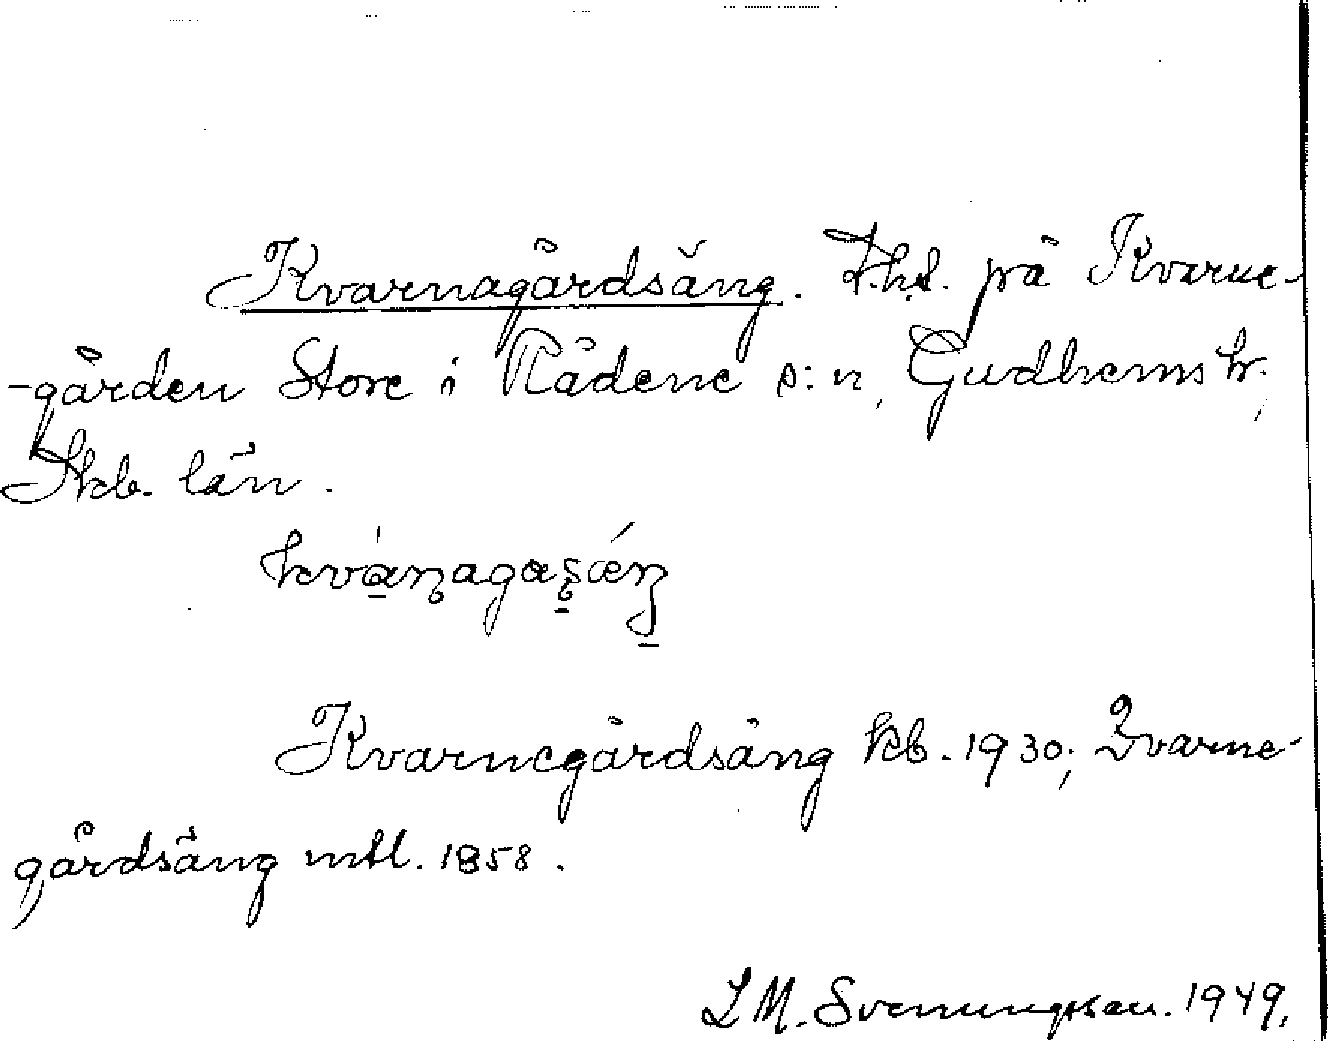 Kvarnagårdsäng. Lht. på Kvarne-
-gården Store i Rådene s:n, Gudhems hr.,
Skb. län.
kvánagaʂǽŋ
Kvarnegårdsäng kb. 1930; Qvarne-
gårdsäng mtl. 1858.
L M. Svenungsson. 1949.